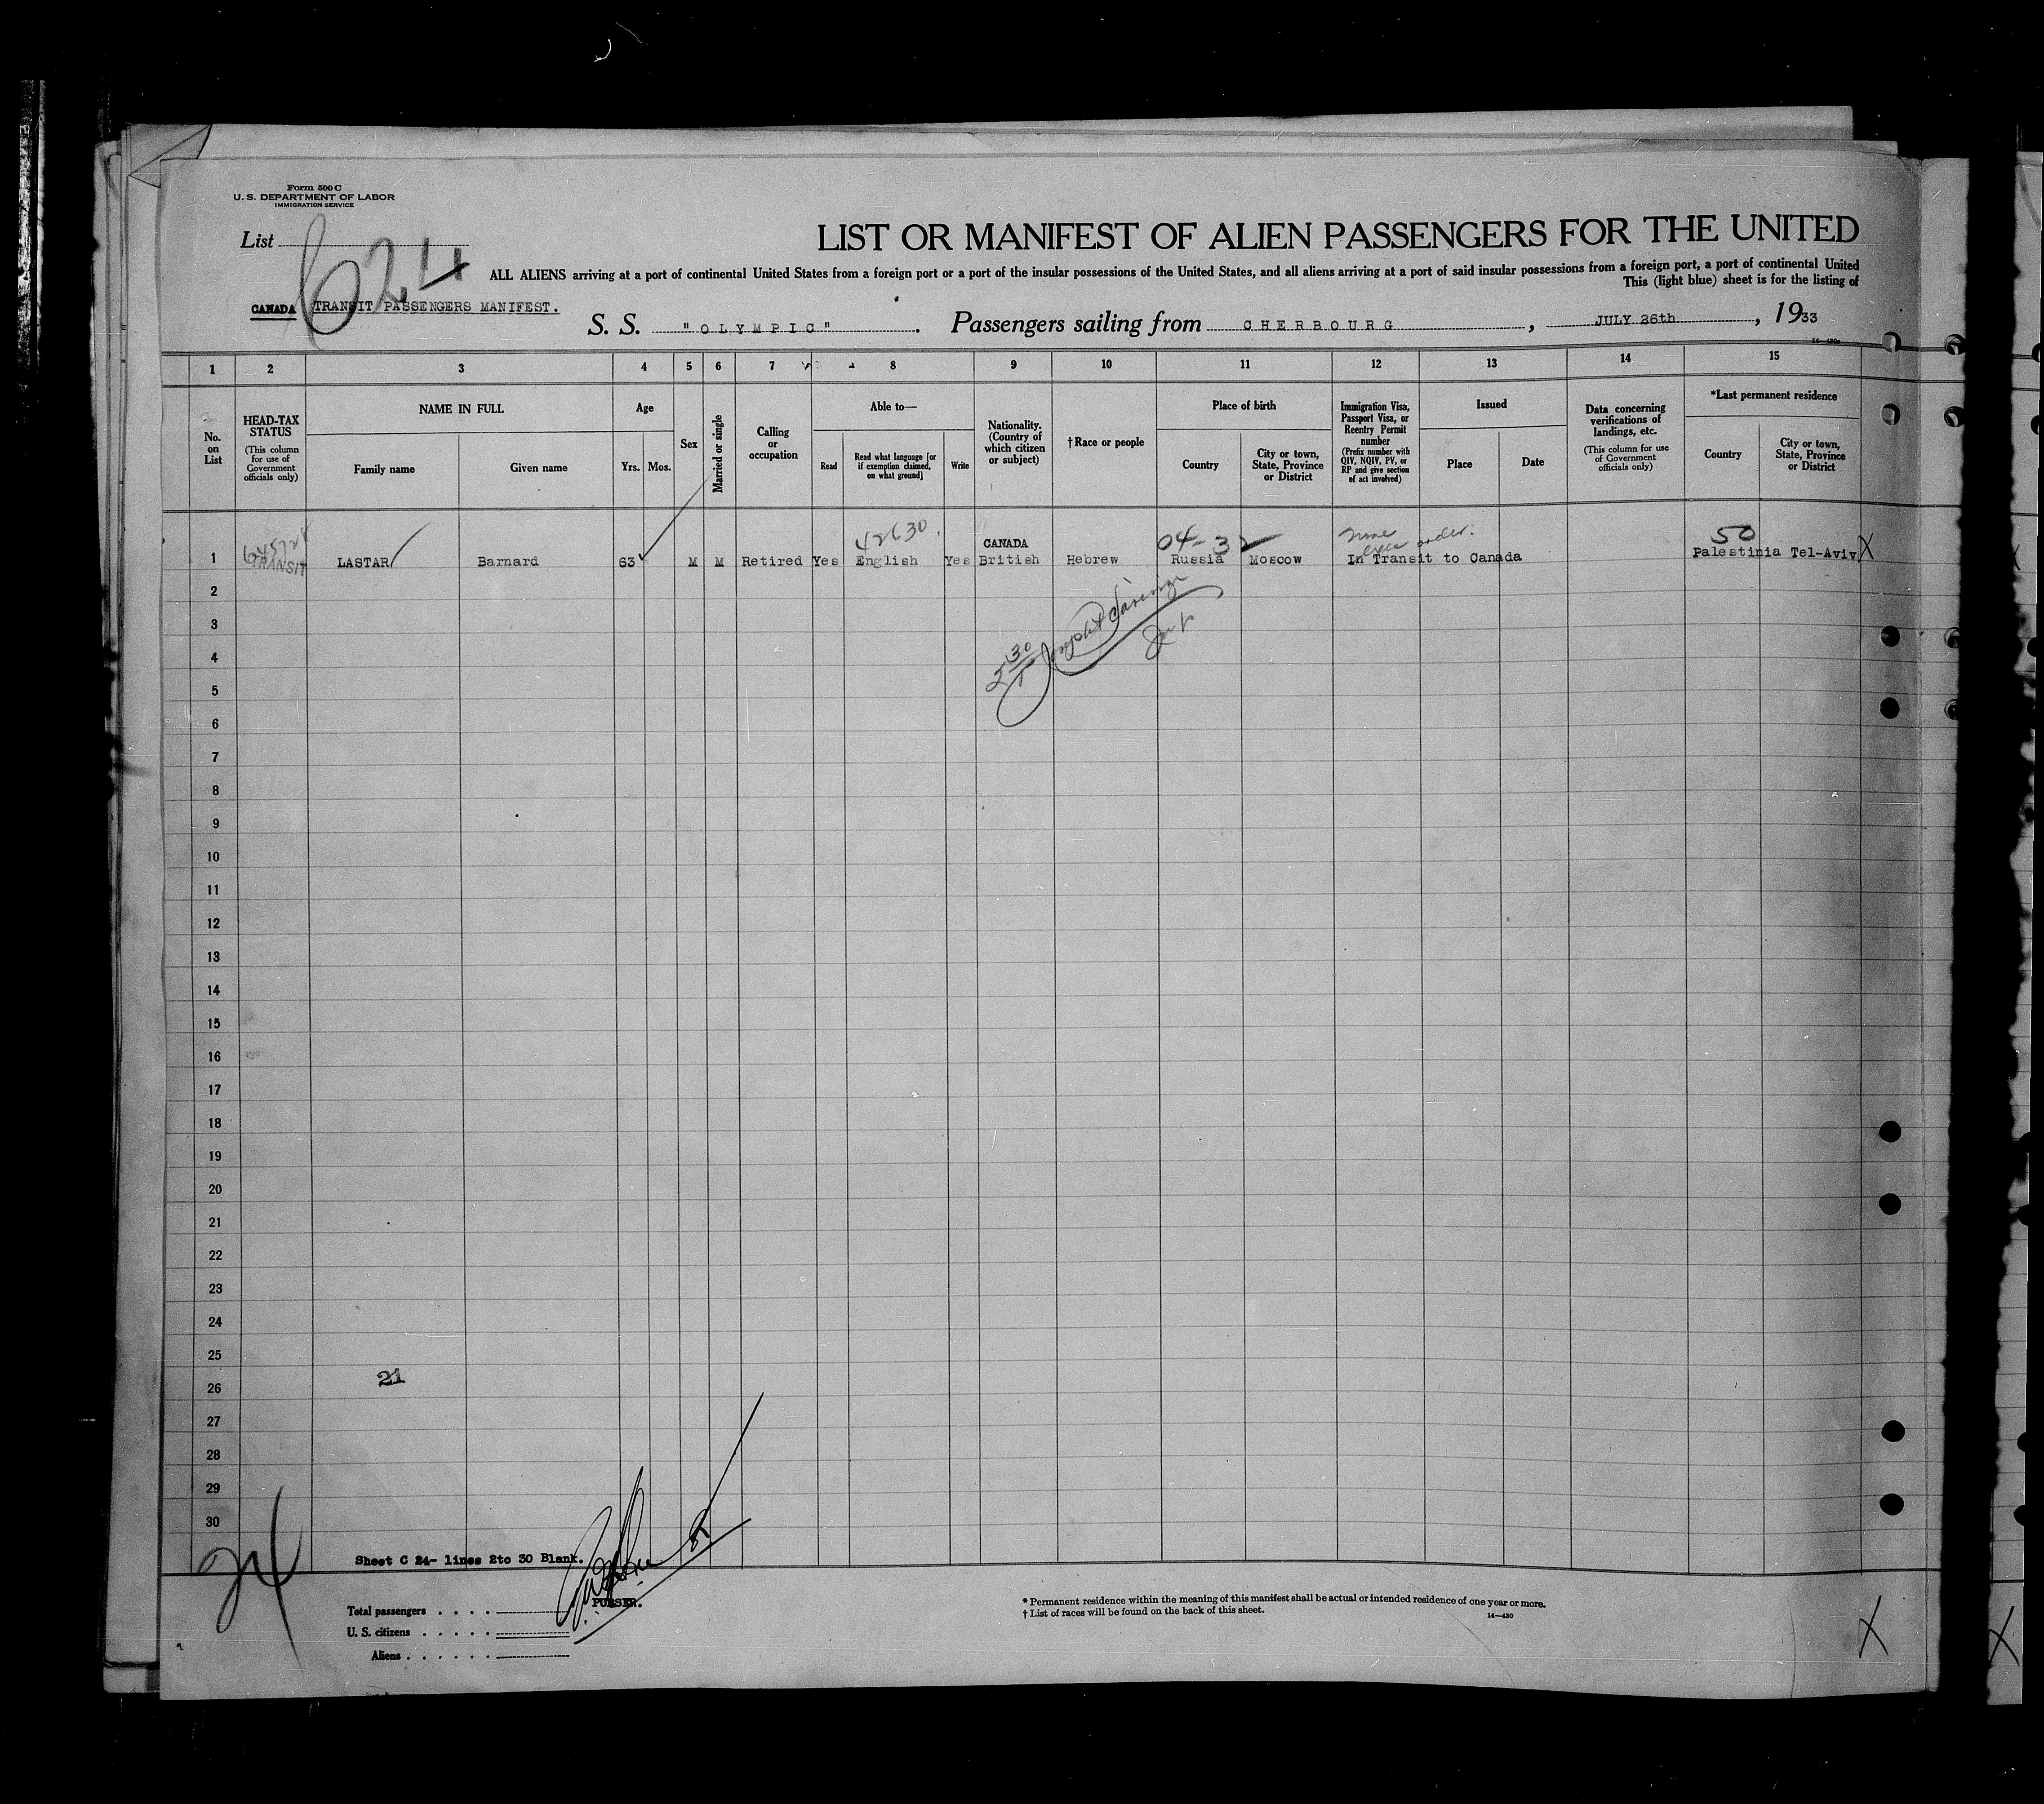 Form 500 C
U. S. DEPARTMENT OF LABOR
IMMIGRATION SERVICE
List
624
LIST OR MANIFEST OF ALIEN PASSENGERS FOR THE UNITED
ALL ALIENS arriving at a port of continental United States from a foreign port or a port of the insular possessions of the United States, and all aliens arriving at a port of said insular possessions from a foreign port, a port of continental United
This (light blue) sheet is for the listing of
CANADA TRANSIT PASSENGERS MANIFEST.
S. S. "OLYMPIC" . Passengers sailing from CHERBOURG , JULY 26th , 1933
1 2 3 4 5 6 7 8 9 10 11 12 13 14 15
No. on List
HEAD-TAX STATUS (This column for use of Government officials only)
NAME IN FULL
Family name Given name
Age
Yrs. Mos.
Sex
Married or single
Calling or occupation
Able to—
Read
Read what language [or if exemption claimed, on what ground]
Write
Nationality. (Country of which citizen or subject)
† Race or people
Place of birth
Country
City or town, State, Province or District
Immigration Visa, Passport Visa, or Reentry Permit number (Prefix number with QIV, NQIV, PV, or RP and give section of act involved)
Issued
Place Date
Data concerning verifications of landings, etc. (This column for use of Government officials only)
*Last permanent residence
Country
City or town, State, Province or District
42630 CANADA 04-32 None 50
1 TRANSIT LASTAR Barnard 63 M M Retired Yes English Yes British Hebrew Russia Moscow In Transit to Canada Palestinia Tel-Aviv X
2
3
4
5
6
7
8
9
10
11
12
13
14
15
16
17
18
19
20
21
22
23
24
25
21
26
27
28
29
30
24
Sheet C 24- lines 2to 30 Blank.
PURSER.
Total passengers . . . .
U. S. citizens . . . . .
Aliens . . . . . .
* Permanent residence within the meaning of this manifest shall be actual or intended residence of one year or more.
† List of races will be found on the back of this sheet.
14—430
X
X